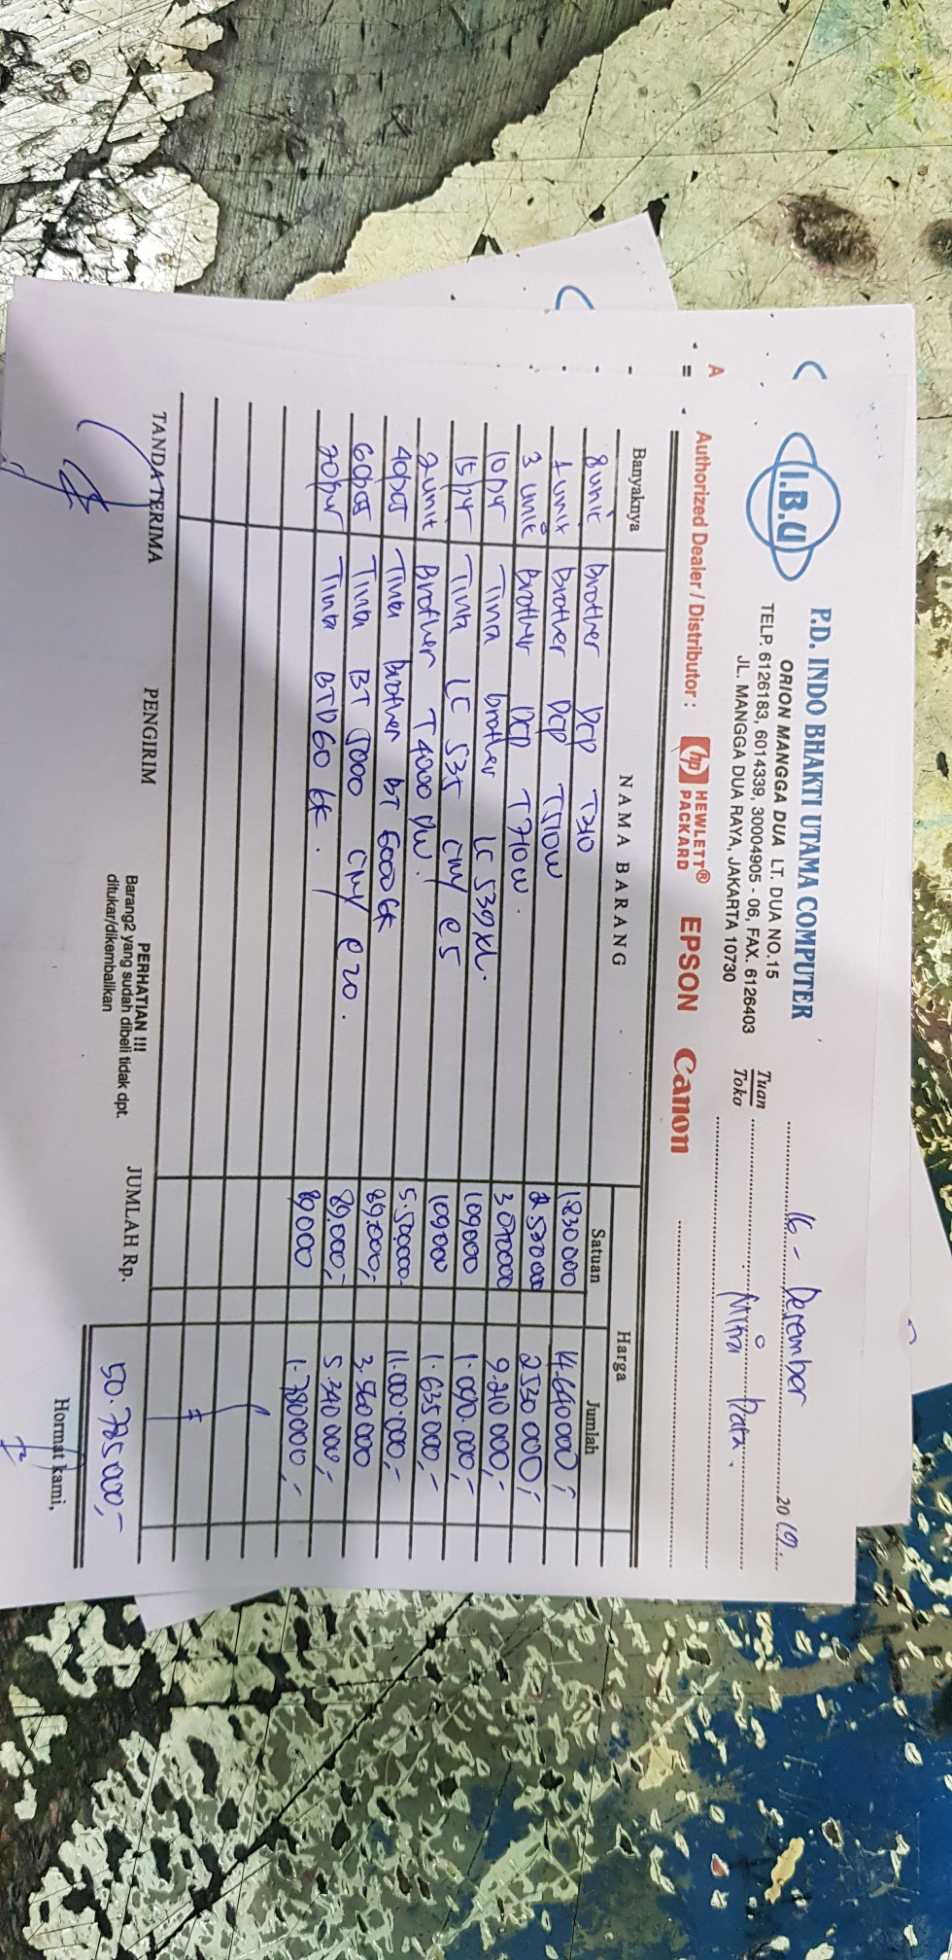 I.B.U
P.D. INDO BHAKTI UTAMA COMPUTER
ORION MANGGA DUA LT. DUA NO.15
TELP. 6126183, 6014339, 30004905 - 06, FAX. 6126403
JL. MANGGA DUA RAYA, JAKARTA 10730
16 - Desember 2019
Tuan
Toko
Mitra Data.
A
Authorized Dealer / Distributor : hp HEWLETT® PACKARD EPSON Canon
Banyaknya NAMA BARANG Harga
Satuan Jumlah
8 unit Brother DCP T310 1830 000 14.640 000,-
1 unit Brother DCP T510W 2530 000 2530 000,-
3 unit Brother DCP T710W. 3070000 9.210 000,-
10 pcs Tinta Brother LC 539XL. 109000 1.090.000,-
15 pcs Tinta LC 535 CMY @5 109000 1.635 000,-
2 unit Brother T4000 DW. 5.500000- 11.000.000,-
40pcs Tinta Brother BT 6000 BK 89.000,- 3.560 000
60pcs Tinta BT 5000 CMY @20. 89.000,- 5.340 000,-
20pcs Tinta BTD60 BK. 89000 1.780000,-
TANDA TERIMA PENGIRIM
PERHATIAN !!!
Barang2 yang sudah dibeli tidak dpt.
ditukar/dikembalikan
JUMLAH Rp. 50.785 000,-
Hormat kami,